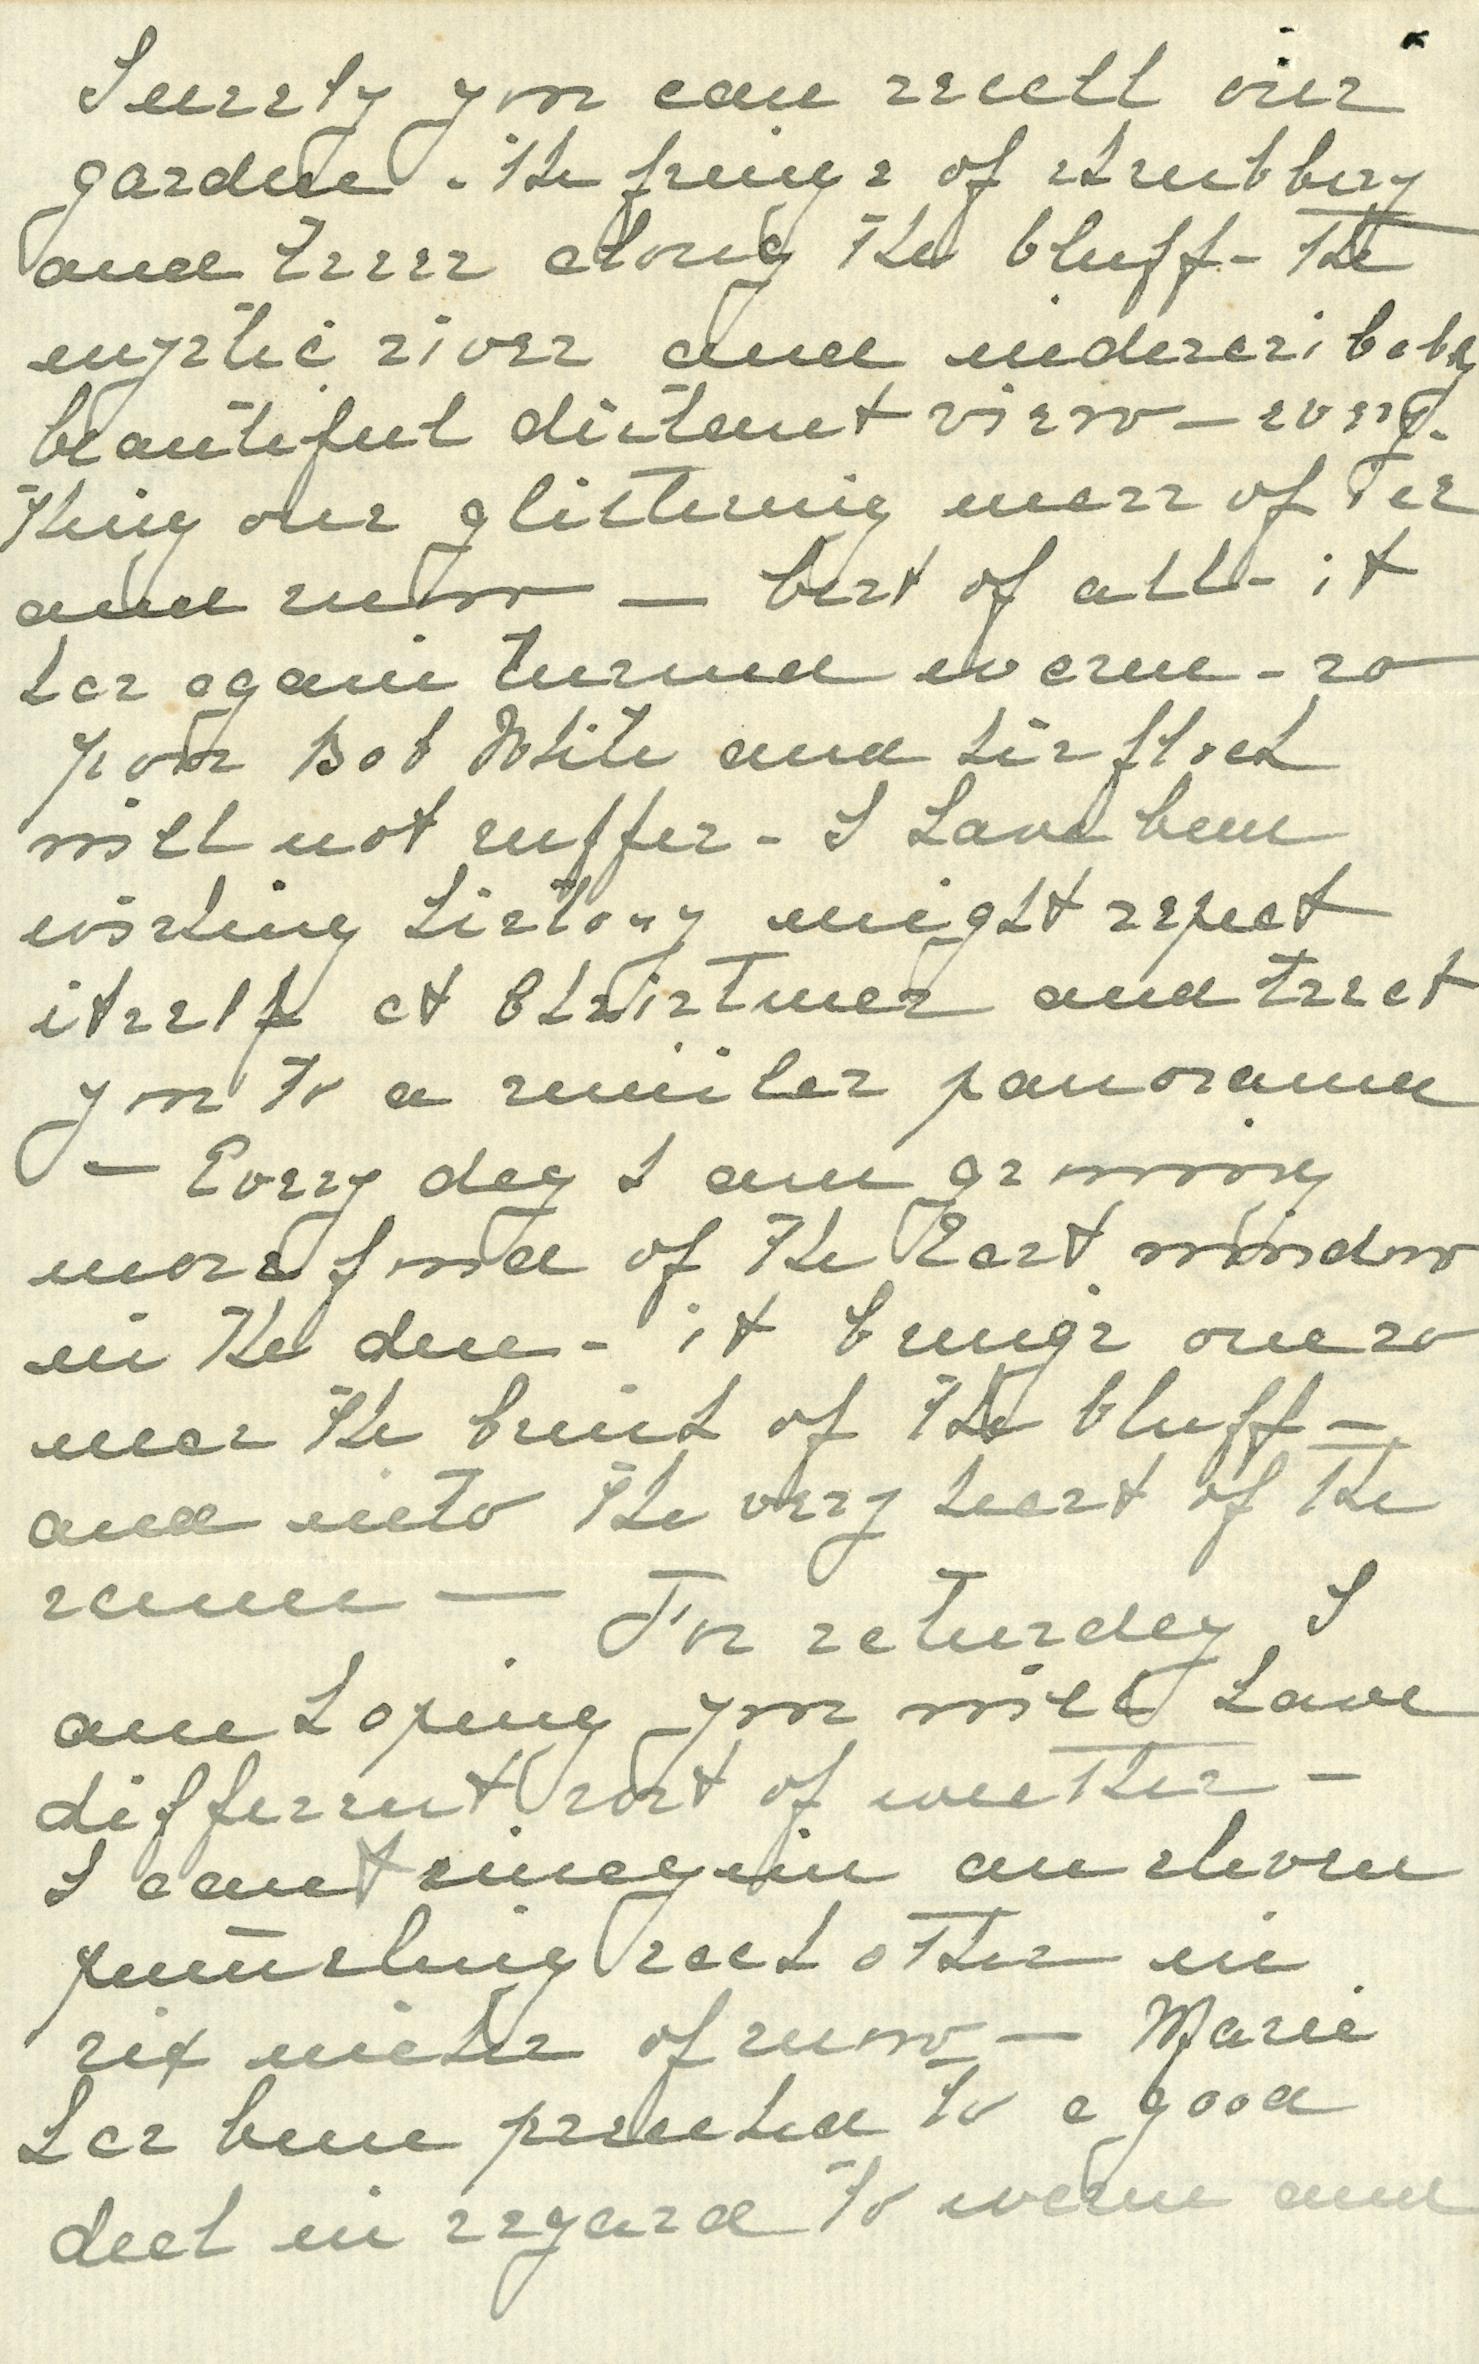 Surely you can recall our
garden - the fringe of shrubbery
and trees along the bluff - the
mystic river and indescribably
beautiful distant view - every-
thing one glistening mass of ice
and snow — best of all - it
has again turned warm - so
poor Bob White and his flock
will not suffer - I have been
wishing history might repeat
itself at Christmas and treat
you to a similar panorama
- Every day I am growing
more fond of the East window
in the den - it brings one so
near the brink of the bluff -
and into the very heart of the
scene — For saturday I
am hoping you will have
different sort of weather -
I cant imagin an eleven
punishing each other in
six inches of snow - Marie
has been preached to a good
deal in regard to warm and